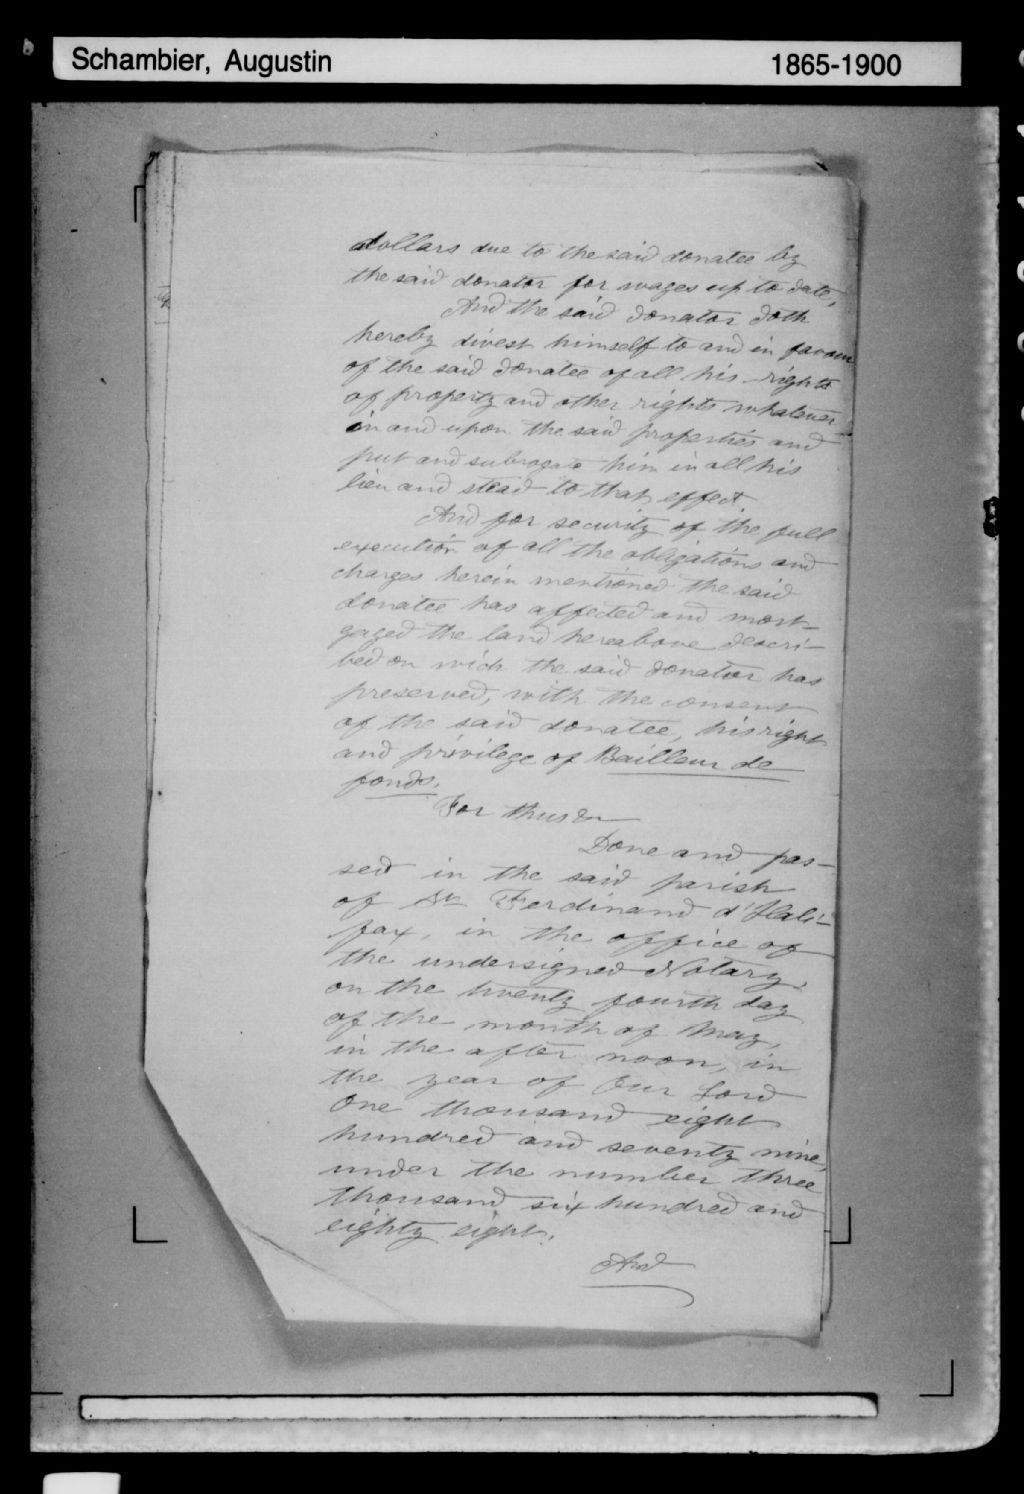 Schambier, Augustin 1865-1900
dollars due to the said donatee by
the said donator for wages up to date,
And the said donator doth
hereby divest himself to and in favour
of the said donatee of all his rights
of property and other rights whatever
in and upon the said properties and
put and subrogate him in all his
lieu and stead to that effect
And for security of the full
execution of all the obligations and
charges herein mentioned the said
donatee has affected and mort-
gaged the land hereabove descri-
bed on wich the said donator has
preserved, with the consent
of the said donatee, his right
and privilege of Bailleur de
fonds.
For thus &c
Done and pas-
sed in the said parish
of St Ferdinand d'Hali-
fax, in the office of
the undersigned Notary,
on the twenty fourth day
of the month of May,
in the after noon, in
the year of Our Lord
One thousand eight
hundred and seventy nine,
under the number three
thousand six hundred and
eighty eight.
And